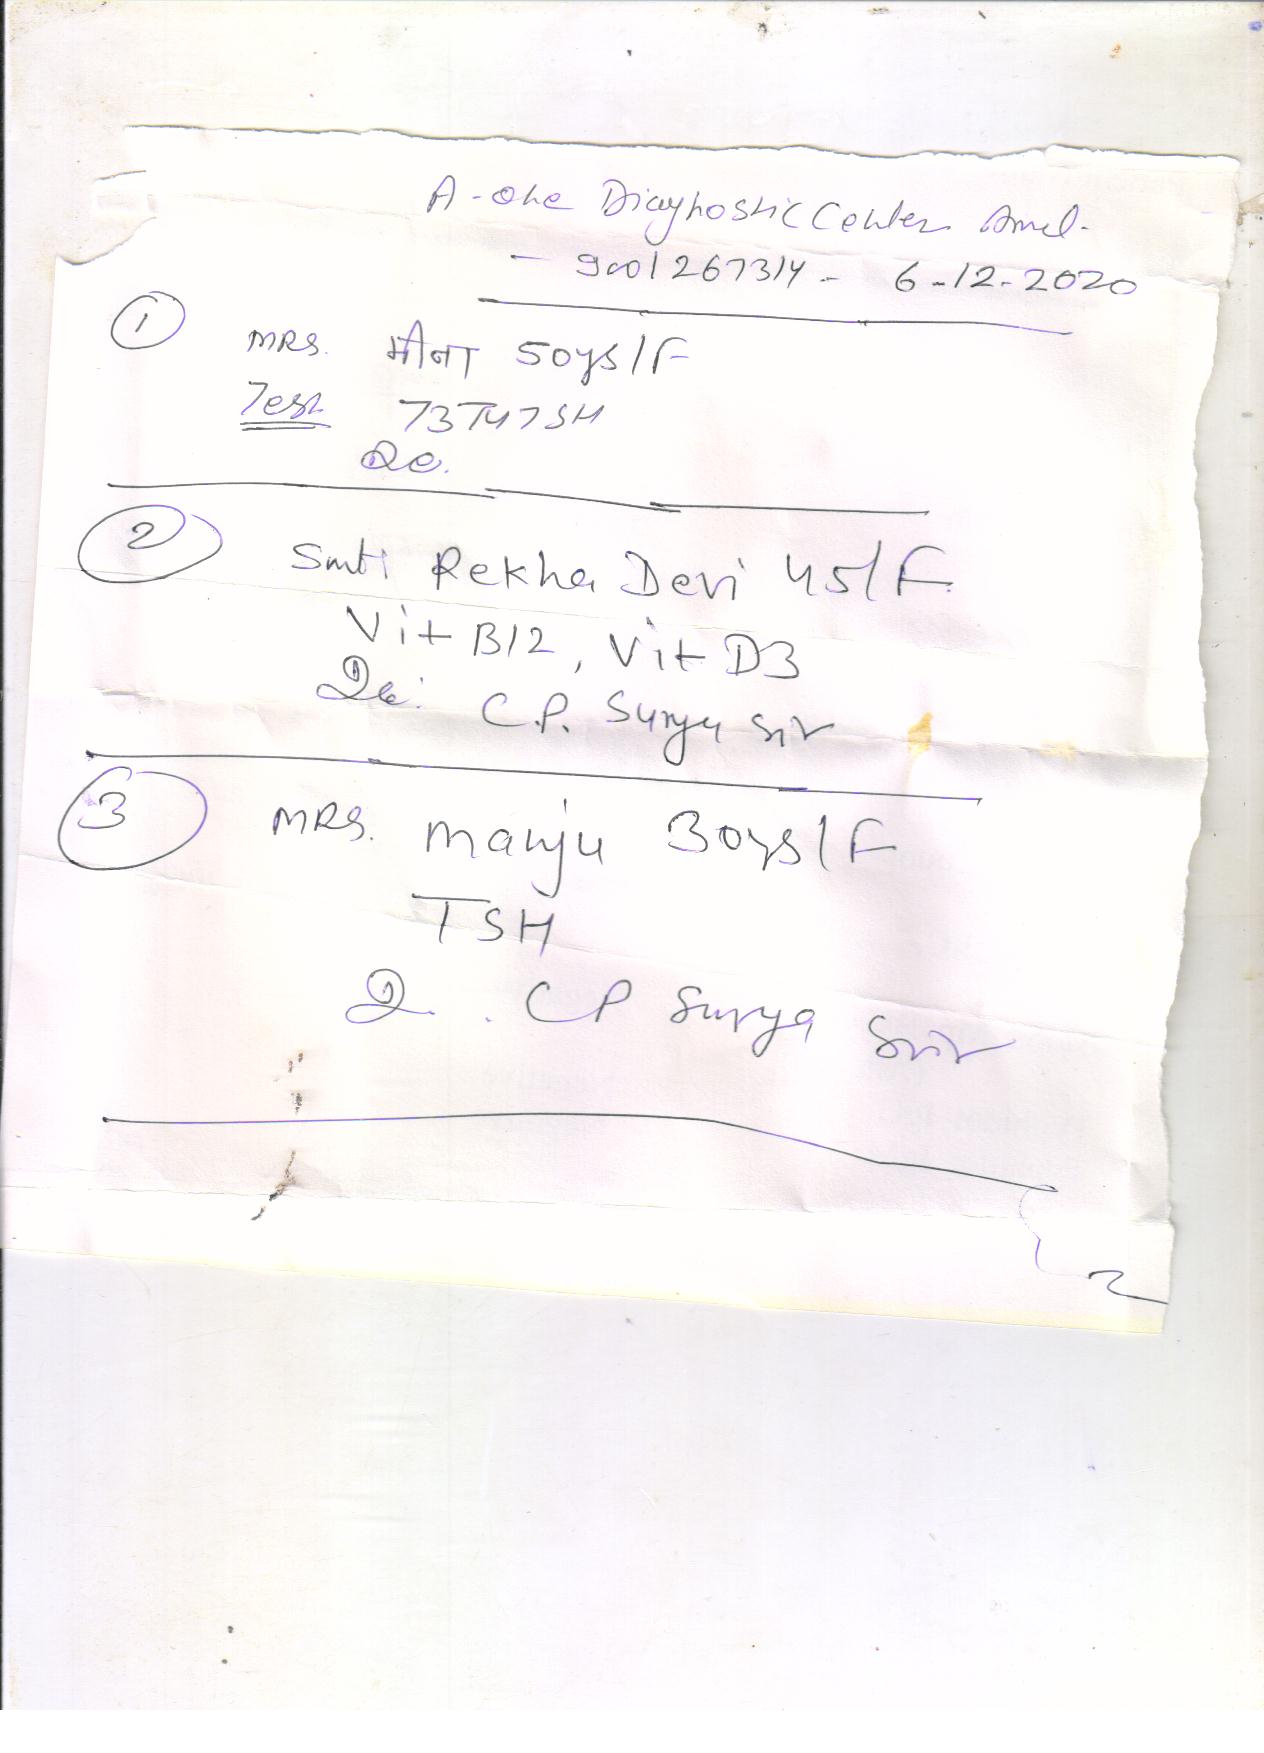 A-one Diagnostic Center Amel.
- 9001267314 - 6-12-2020
1 MRS. मीना 50ys/F
Test T3T4TSH
2 Smti Rekha Devi 45/F
Vit B12, Vit D3
C.P. Surya Sir
3 MRS. Manju 30ys/F
TSH
CP Surya Sir
2